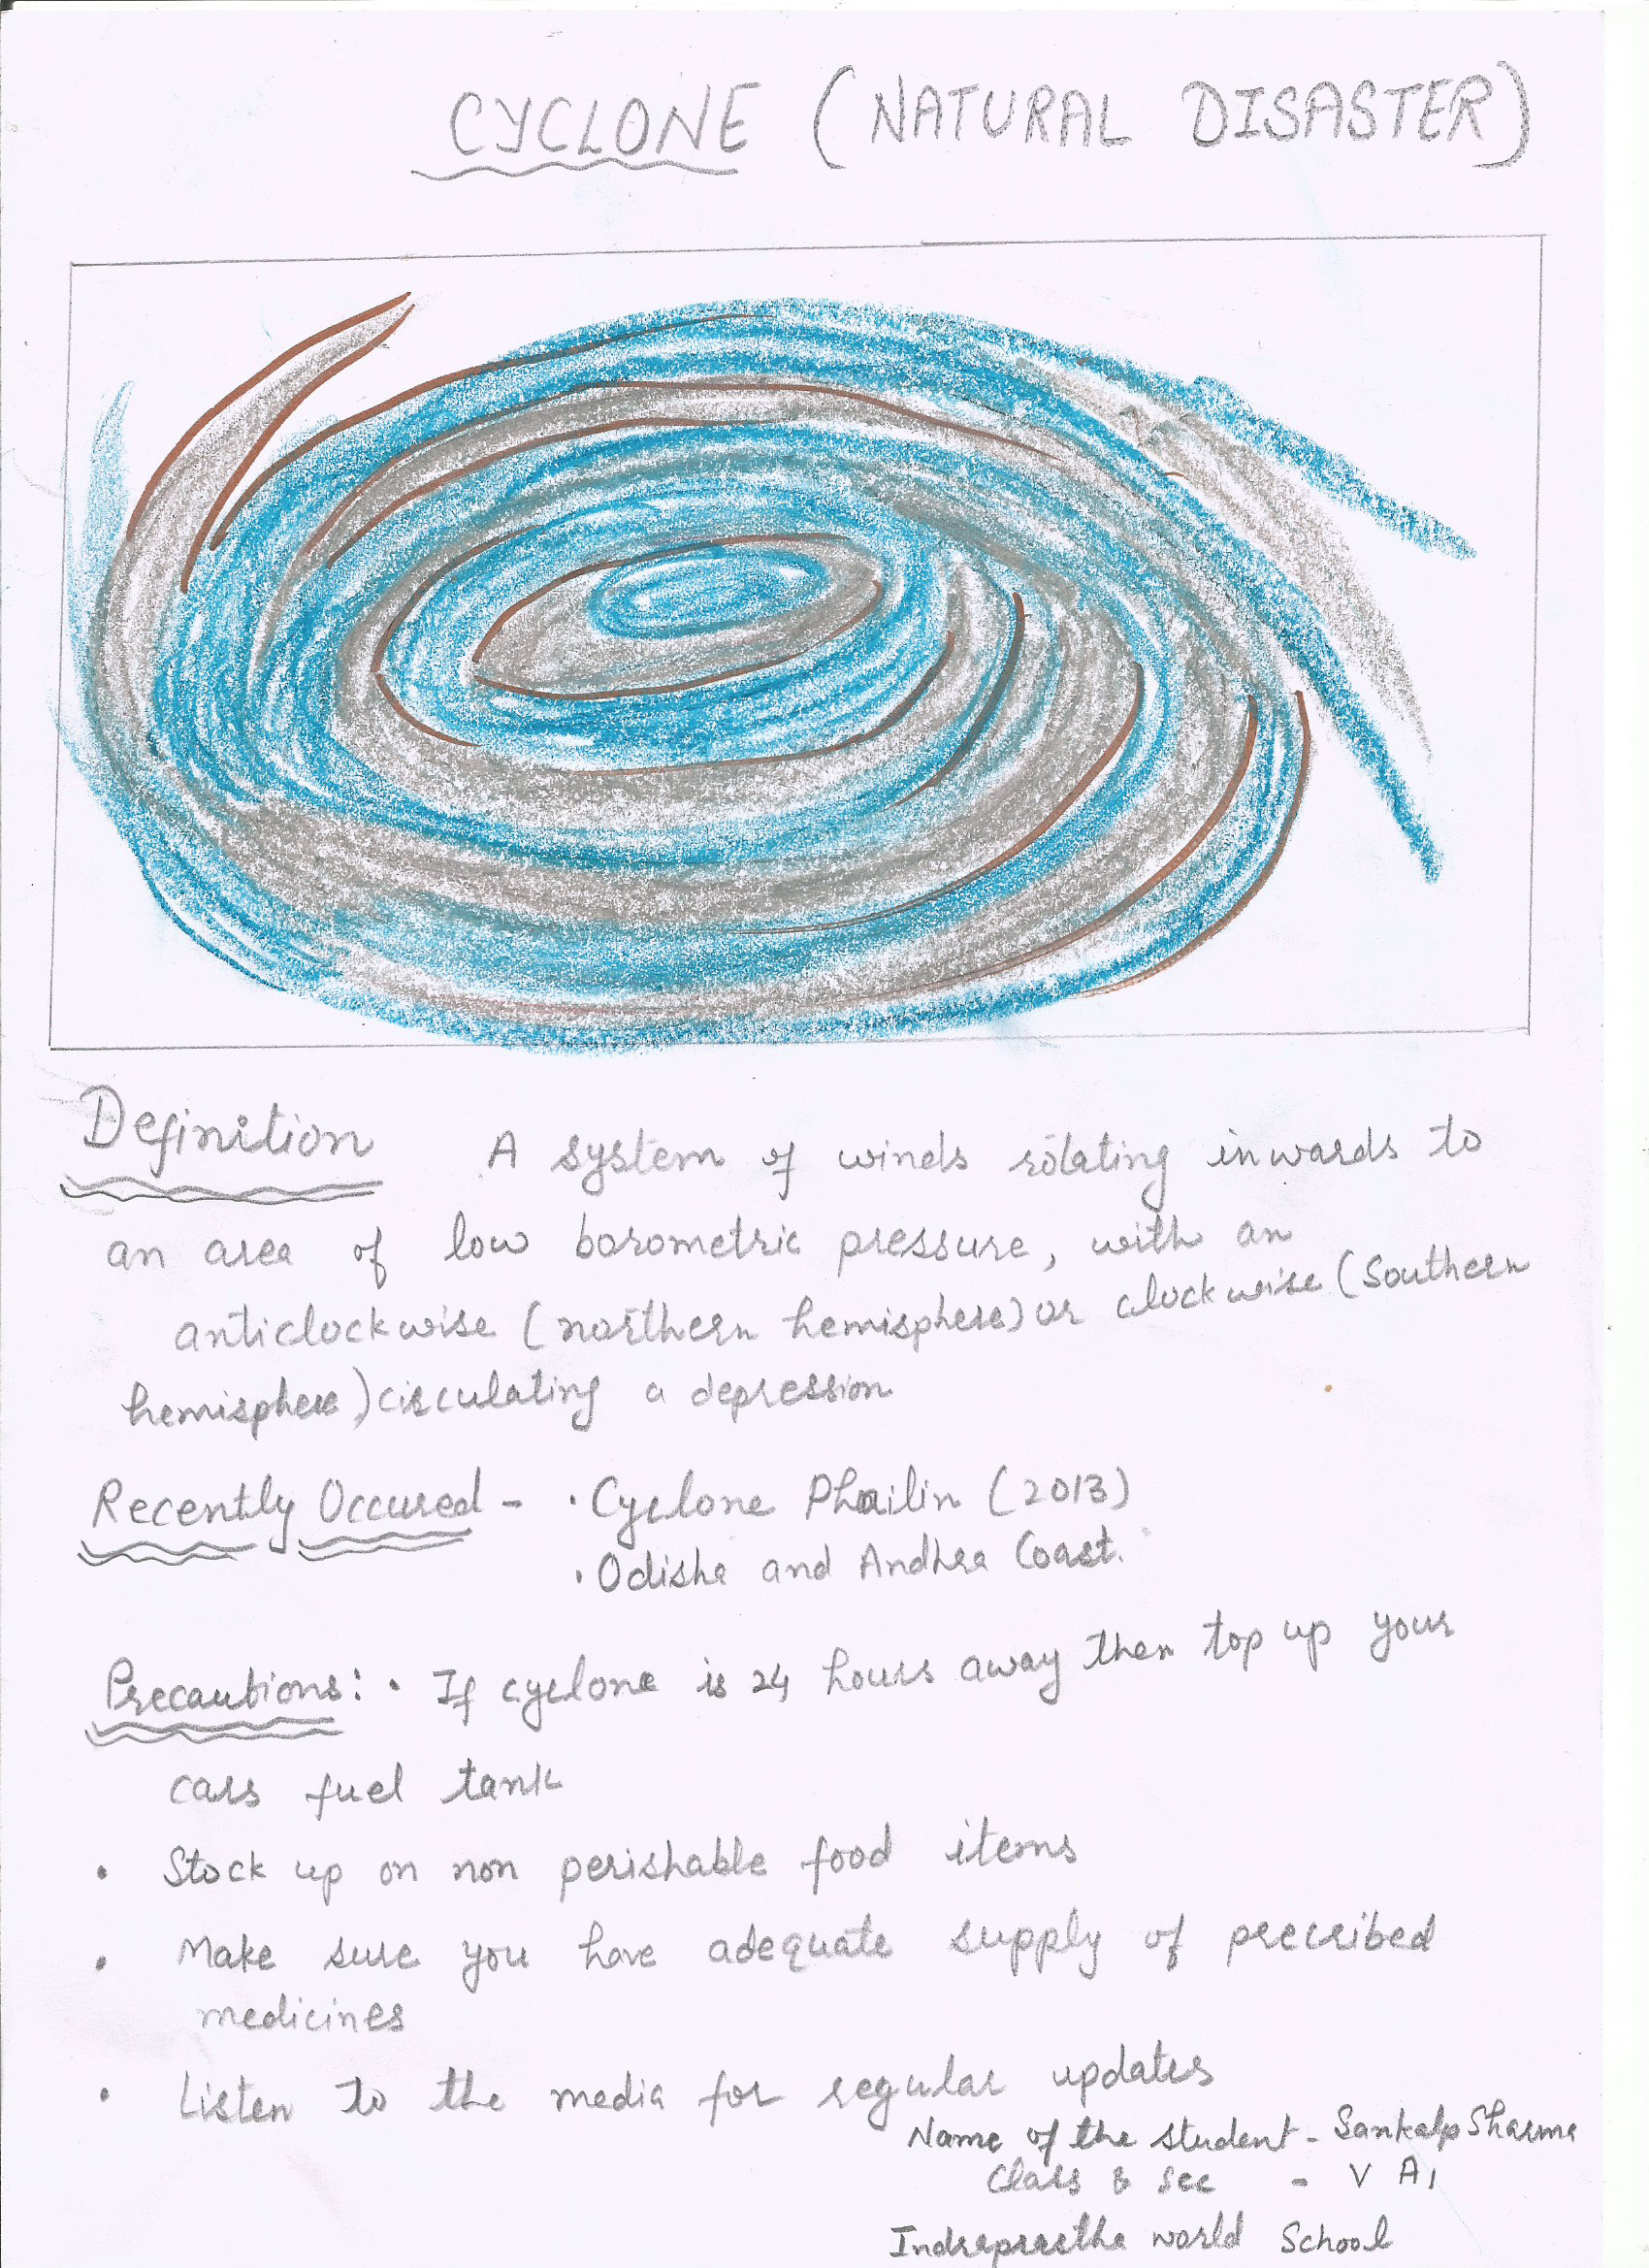 CYCLONE (NATURAL DISASTER)
Definition A system of winds rotating inwards to
an area of low barometric pressure, with an
anticlockwise (northern hemisphere) or clockwise (Southern
hemisphere) circulating a depression
Recently Occured - • Cyclone Phailin (2013)
• Odisha and Andhra Coast.
Precautions: • If cyclone is 24 hours away then top up your
cars fuel tank
• Stock up on non perishable food items
• Make sure you have adequate supply of precribed
medicines
• Listen to the media for regular updates
Name of the student - Sankalp Sharma
Class & Sec - V A1
Indraprastha world School